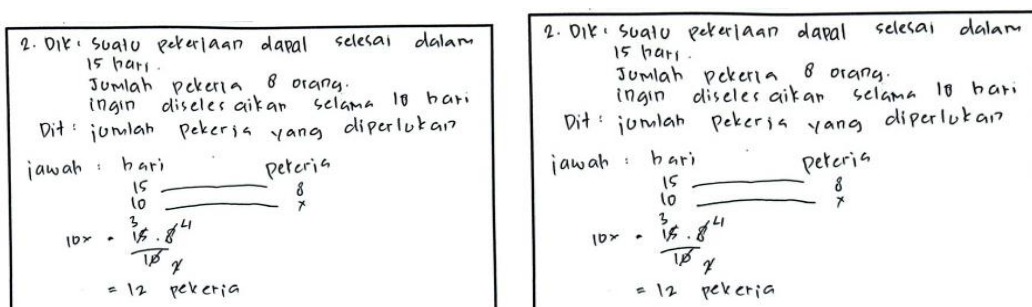 2. Dik : Suatu pekerjaan dapat selesai dalam
15 hari.
Jumlah pekerja 8 orang.
ingin diselesaikan selama 10 hari
Dit : jumlah pekerja yang diperlukan
jawab : hari pekerja
15 8
10 x
10x = 15 . 8
3 4
10 2
= 12 pekerja
2. Dik : Suatu pekerjaan dapat selesai dalam
15 hari.
Jumlah pekerja 8 orang.
ingin diselesaikan selama 10 hari
Dit : jumlah pekerja yang diperlukan
jawab : hari pekerja
15 8
10 x
10x = 15 . 8
3 4
10 2
= 12 pekerja